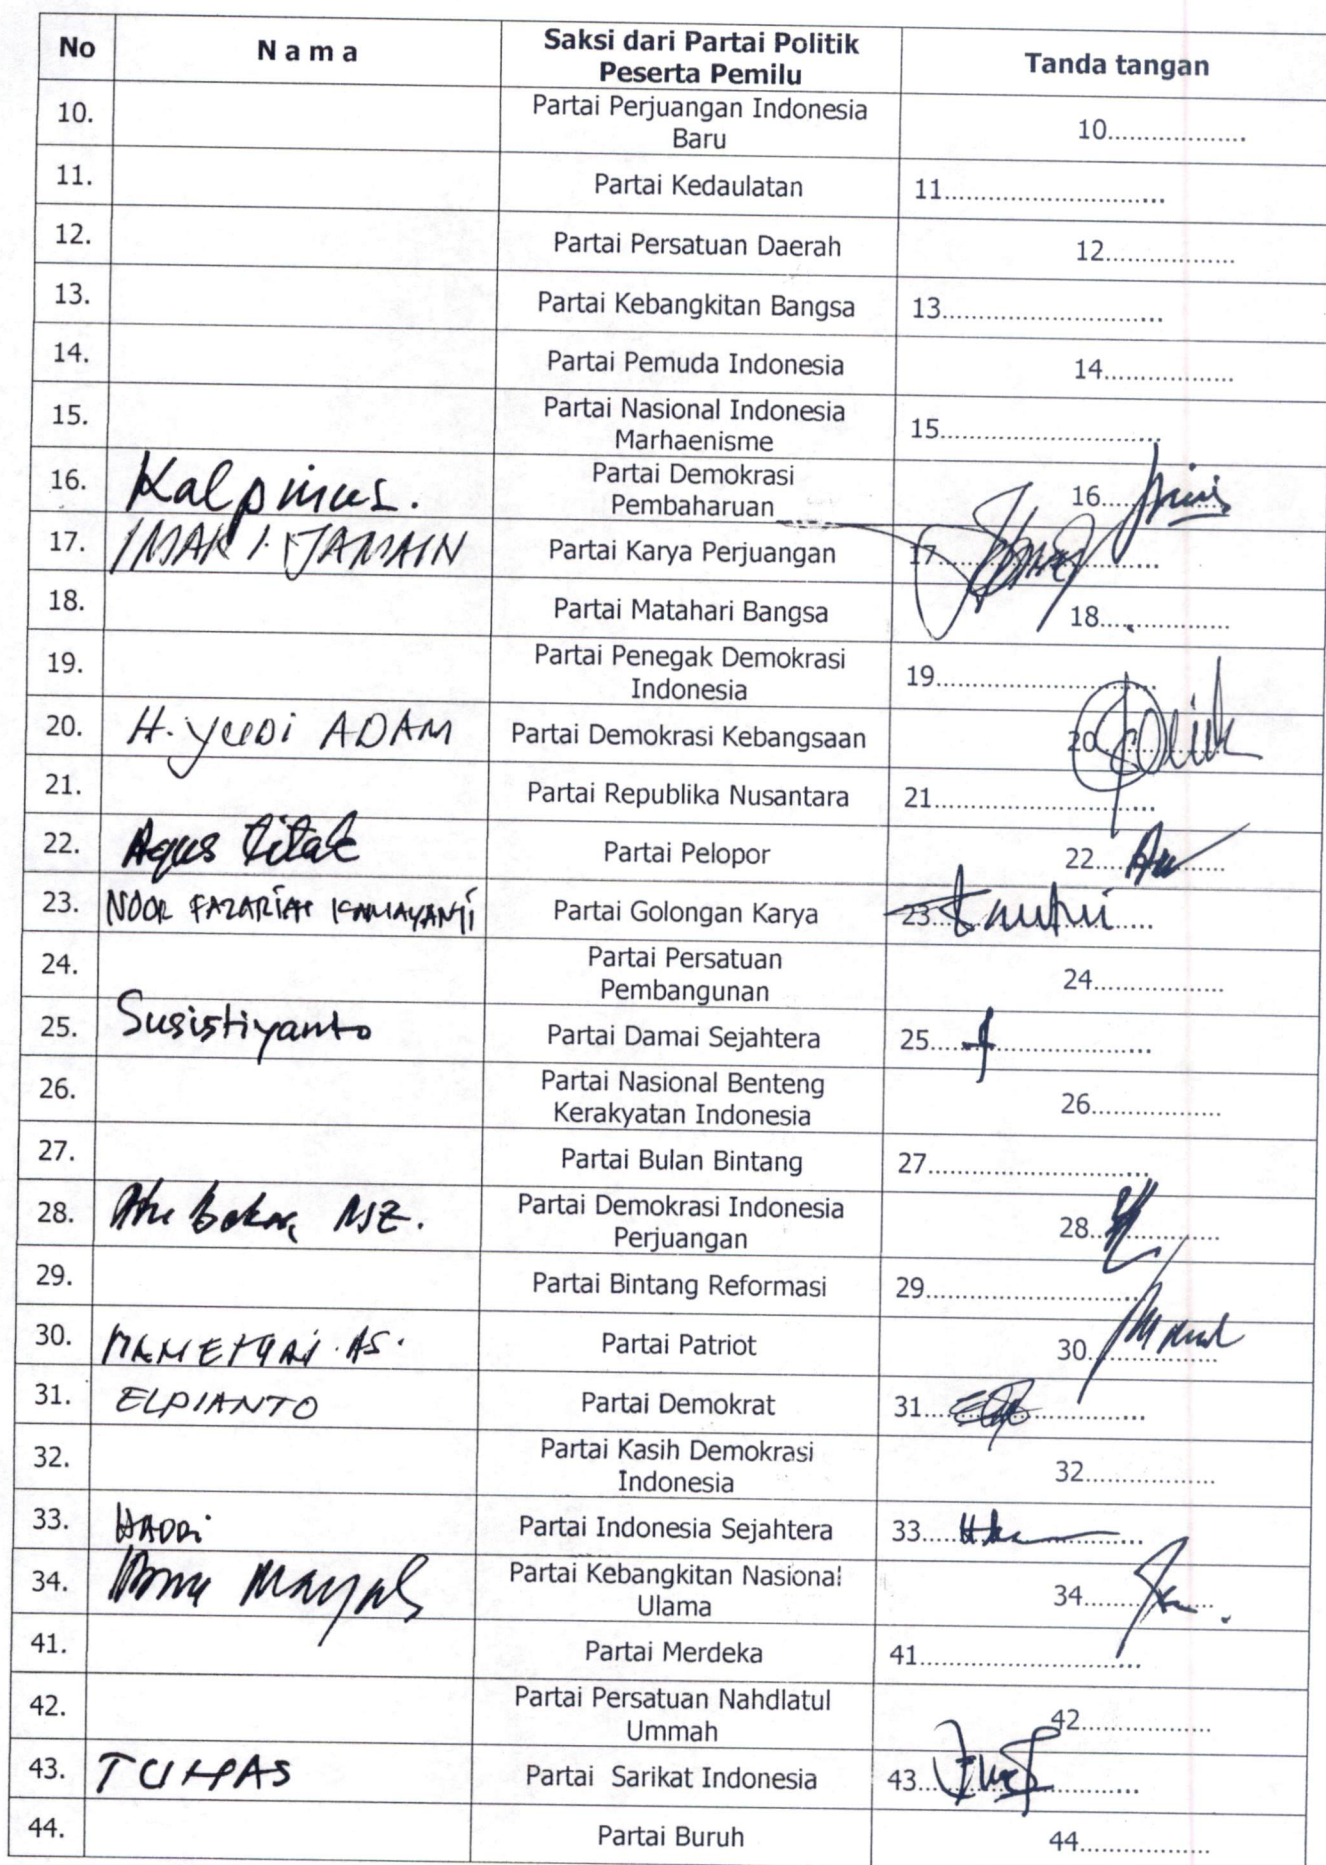 No Nama Saksi dari Partai Politik Tanda tangan
Peserta Pemilu
10. Partai Perjuangan Indonesia 10..................
Baru
11. Partai Kedaulatan 11............................
12. Partai Persatuan Daerah 12..................
13. Partai Kebangkitan Bangsa 13............................
14. Partai Pemuda Indonesia 14..................
15. Partai Nasional Indonesia 15............................
Marhaenisme
16. Kalpinus. Partai Demokrasi 16
Pembaharuan
17. Partai Karya Perjuangan 17
18. Partai Matahari Bangsa 18..................
19. Partai Penegak Demokrasi 19............................
Indonesia
20. H. YUDi ADAM Partai Demokrasi Kebangsaan 20
21. Partai Republika Nusantara 21............................
22. Agus Partai Pelopor 22
23. NOOR FAZARIAH KAMAYANTi Partai Golongan Karya 23
24. Partai Persatuan 24..................
Pembangunan
25. Susistiyanto Partai Damai Sejahtera 25
26. Partai Nasional Benteng 26..................
Kerakyatan Indonesia
27. Partai Bulan Bintang 27............................
28. Partai Demokrasi Indonesia 28
Perjuangan
29. Partai Bintang Reformasi 29............................
30. Partai Patriot 30
31. ELPIANTO Partai Demokrat 31
32. Partai Kasih Demokrasi 32..................
Indonesia
33. HADRi Partai Indonesia Sejahtera 33
34. Partai Kebangkitan Nasional 34
Ulama
41. Partai Merdeka 41............................
42. Partai Persatuan Nahdlatul 42..................
Ummah
43. TUHPAS Partai Sarikat Indonesia 43
44. Partai Buruh 44..................